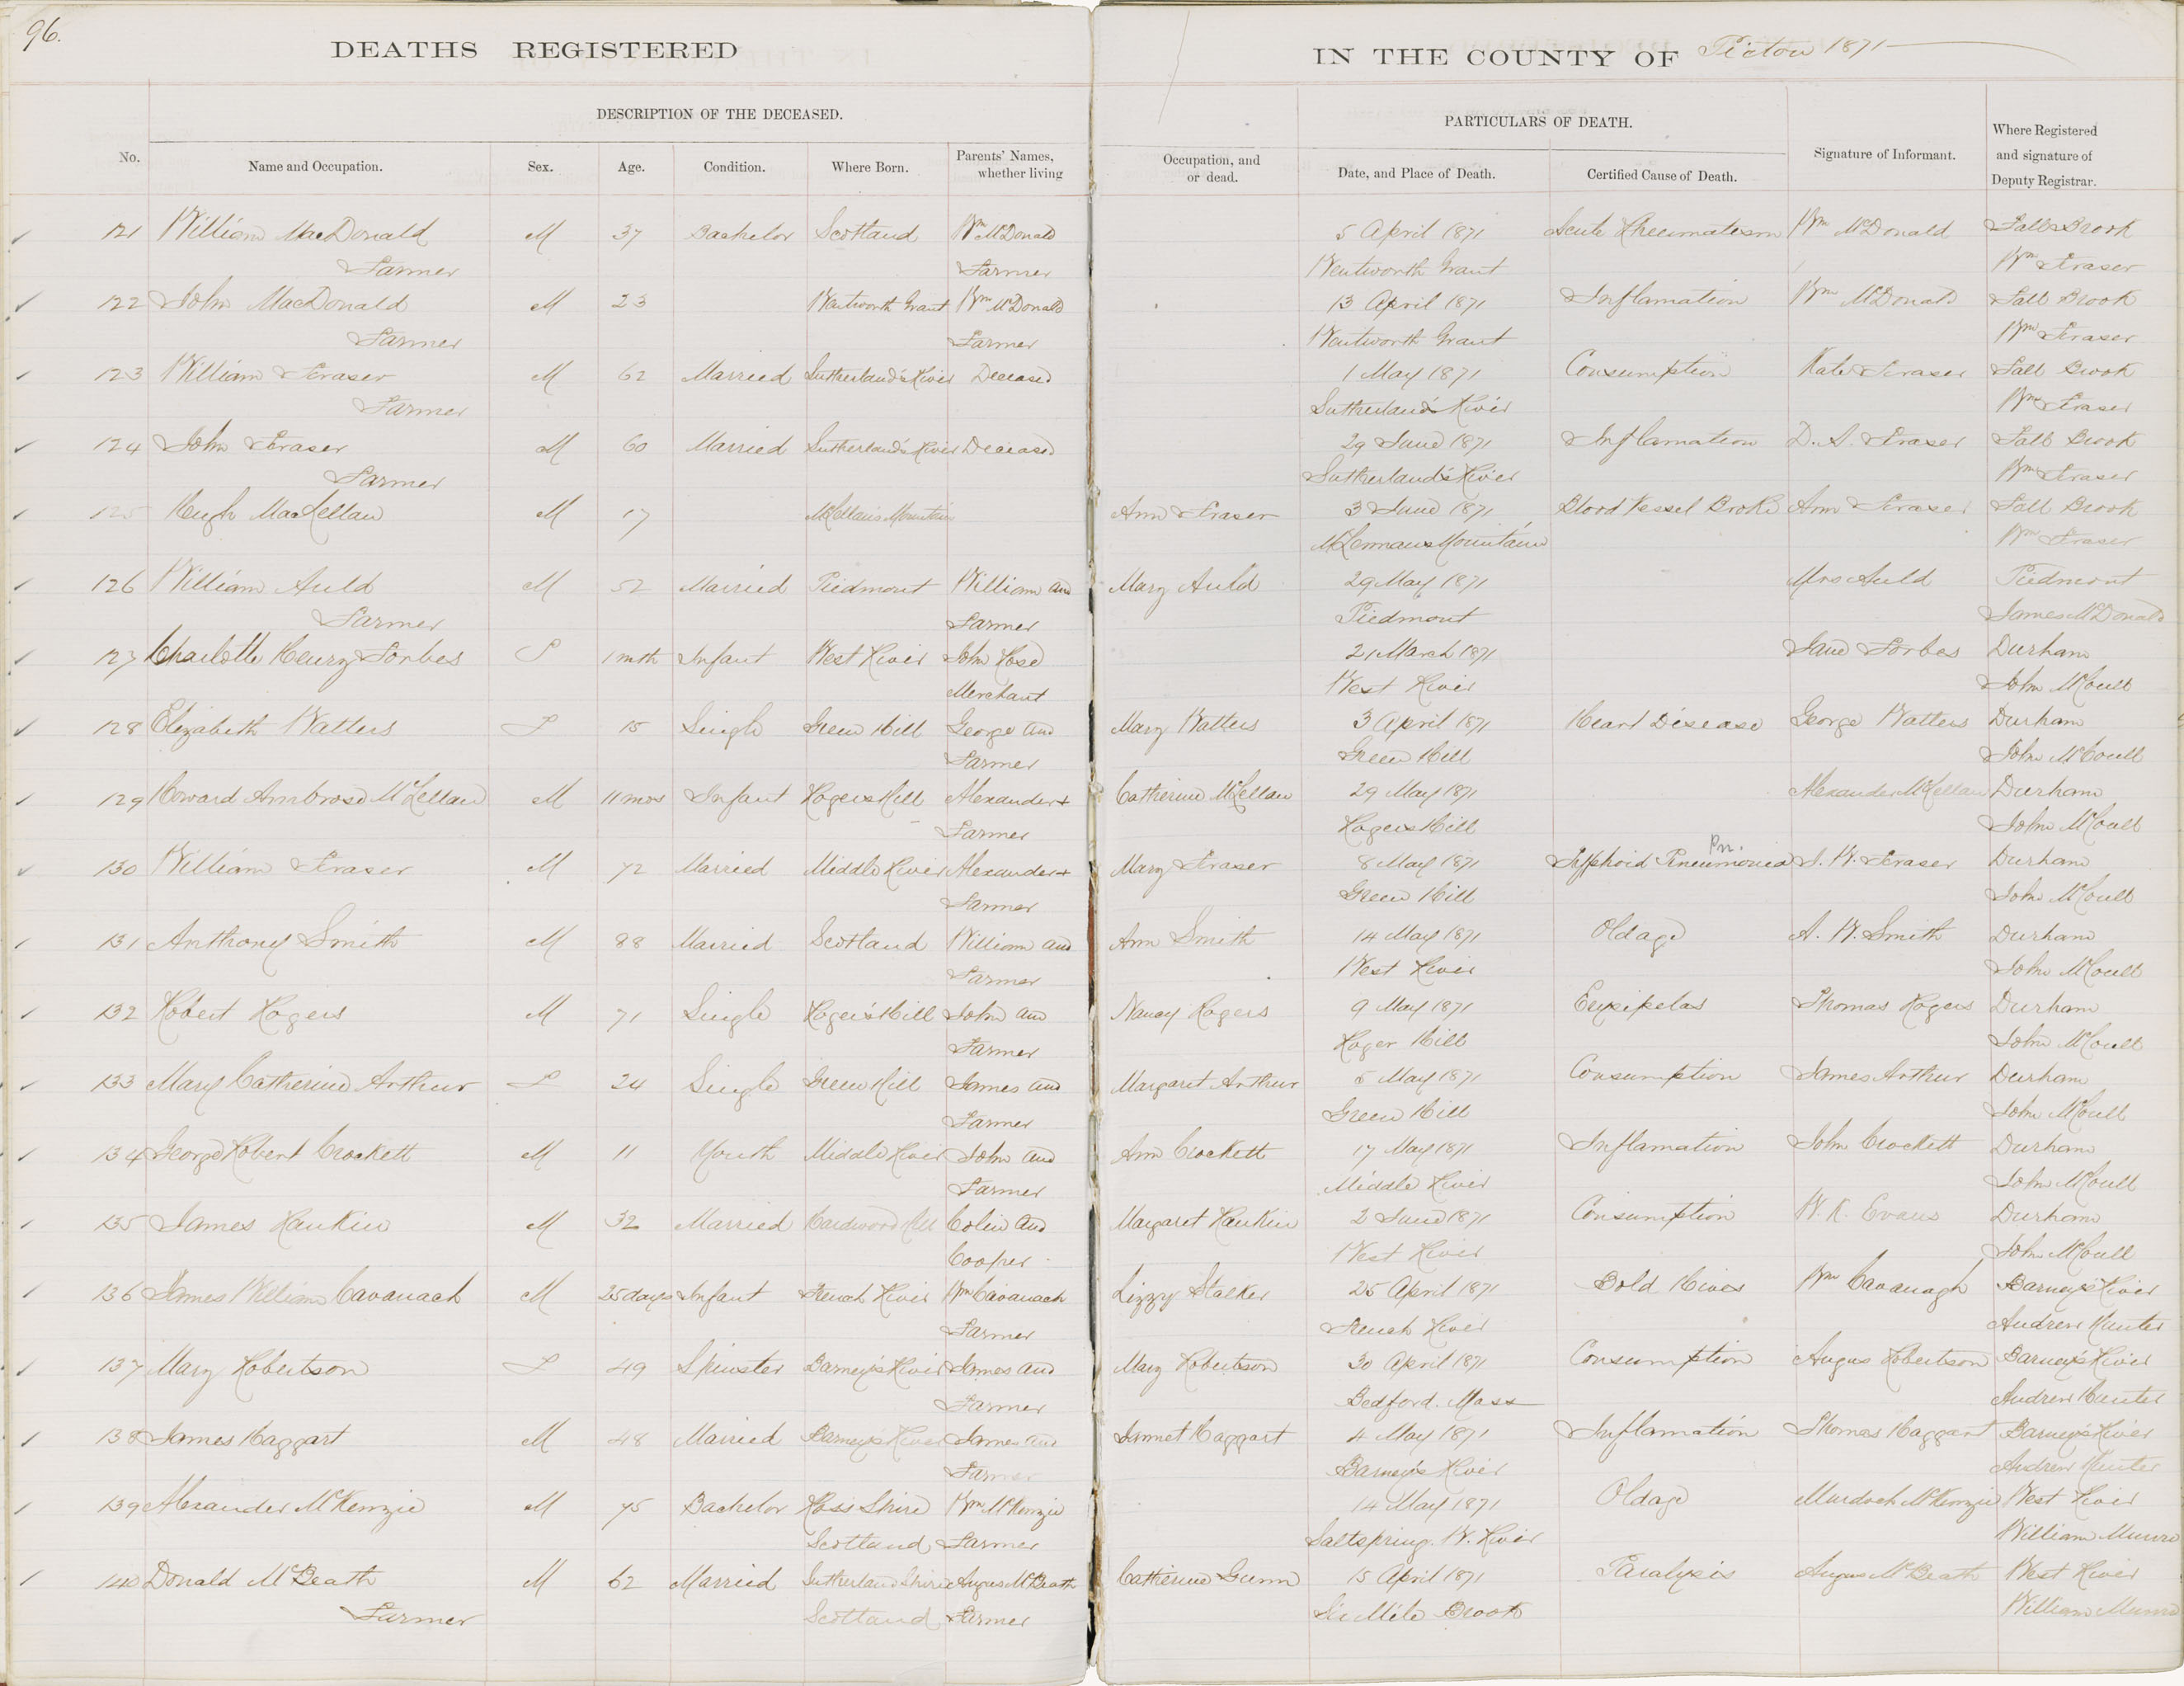 96.
DEATHS REGISTERED IN THE COUNTY OF Pictou 1871
DESCRIPTION OF THE DECEASED. PARTICULARS OF DEATH.
No. Name and Occupation. Sex. Age. Condition. Where Born. Parents' Names, whether living Occupation, and or dead. Date, and Place of Death. Certified Cause of Death. Signature of Informant. Where Registered and signature of Deputy Registrar.
121 William MacDonald M 37 Bachelor Scotland Wm McDonald 5 April 1871 Acute Rheumatism Wm McDonald Fall Brook
Farmer Farmer Wentworth Grant Wm Fraser
122 John MacDonald M 23 Wentworth Grant Wm McDonald 13 April 1871 Inflamation Wm McDonald Fall Brook
Farmer Farmer Wentworth Grant Wm Fraser
123 William Fraser M 62 Married Sutherland's River Deceased 1 May 1871 Consumption Kate Fraser Fall Brook
Farmer Sutherland's River Wm Fraser
124 John Fraser M 60 Married Sutherland's River Deceased 29 June 1871 Inflamation D. A. Fraser Fall Brook
Farmer Sutherland's River Wm Fraser
125 Hugh MacLellan M 17 McLellan's Mountain Ann Fraser 3 June 1871 Blood Vessel Broke Ann Fraser Fall Brook
McLennans Mountain Wm Fraser
126 William Auld M 52 Married Piedmont William and Mary Auld 29 May 1871 Mrs Auld Piedmont
Farmer Farmer Piedmont James McDonald
127 Charlotte Henry Forbes F 1 mth Infant West River John Rose 21 March 1871 Jane Forbes Durham
Merchant West River John McCoull
128 Elizabeth Watters F 15 Single Green Hill George and Mary Watters 3 April 1871 Heart Disease George Watters Durham
Farmer Green Hill John McCoull
129 Howard Ambrose McLellan M 11 mos Infant Rogers Hill Alexander + Catherine McLellan 29 May 1871 Alexander McLellan Durham
Farmer Rogers Hill John McCoull
Pn.
130 William Fraser M 72 Married Middle River Alexander + Mary Fraser 8 May 1871 Typhoid Pneumonia J. W. Fraser Durham
Farmer Green Hill John McCoull
131 Anthony Smith M 88 Married Scotland William and Ann Smith 14 May 1871 Old age A. W. Smith Durham
Farmer West River John McCoull
132 Robert Rogers M 71 Single Roger's Hill John and Nancy Rogers 9 May 1871 Erysipelas Thomas Rogers Durham
Farmer Roger Hill John McCoull
133 Mary Catherine Arthur F 24 Single Green Hill James and Margaret Arthur 5 May 1871 Consumption James Arthur Durham
Farmer Green Hill John McCoull
134 George Robert Crockett M 11 Youth Middle River John and Ann Crockett 17 May 1871 Inflamation John Crockett Durham
Farmer Middle River John McCoull
135 James Rankin M 32 Married Hardwood Hill Colin and Margaret Rankin 2 June 1871 Consumption W. R. Evans Durham
Cooper West River John McCoull
136 James William Cavanach M 25 days Infant French River Wm Cavanach Lizzy Stalker 25 April 1871 Bold Hives Wm Cavanagh Barney's River
Farmer French River Andrew Hunter
137 Mary Robertson F 49 Spinster Barney's River James and Mary Robertson 30 April 1871 Consumption Angus Robertson Barney's River
Farmer Bedford. Mass Andrew Hunter
138 James Haggart M 48 Married Barney's River James and Jannet Haggart 4 May 1871 Inflamation Thomas Haggart Barney's River
Farmer Barney's River Andrew Hunter
139 Alexander McKenzie M 75 Bachelor Ross Shire Wm McKenzie 14 May 1871 Old age Murdoch McKenzie West River
Scotland Farmer Saltspring. W. River William Munro
140 Donald McBeath M 62 Married Sutherland Shire Angus McBeath Catherine Gunn 15 April 1871 Paralysis Angus McBeath West River
Farmer Scotland Farmer Six Mile Brook William Munro